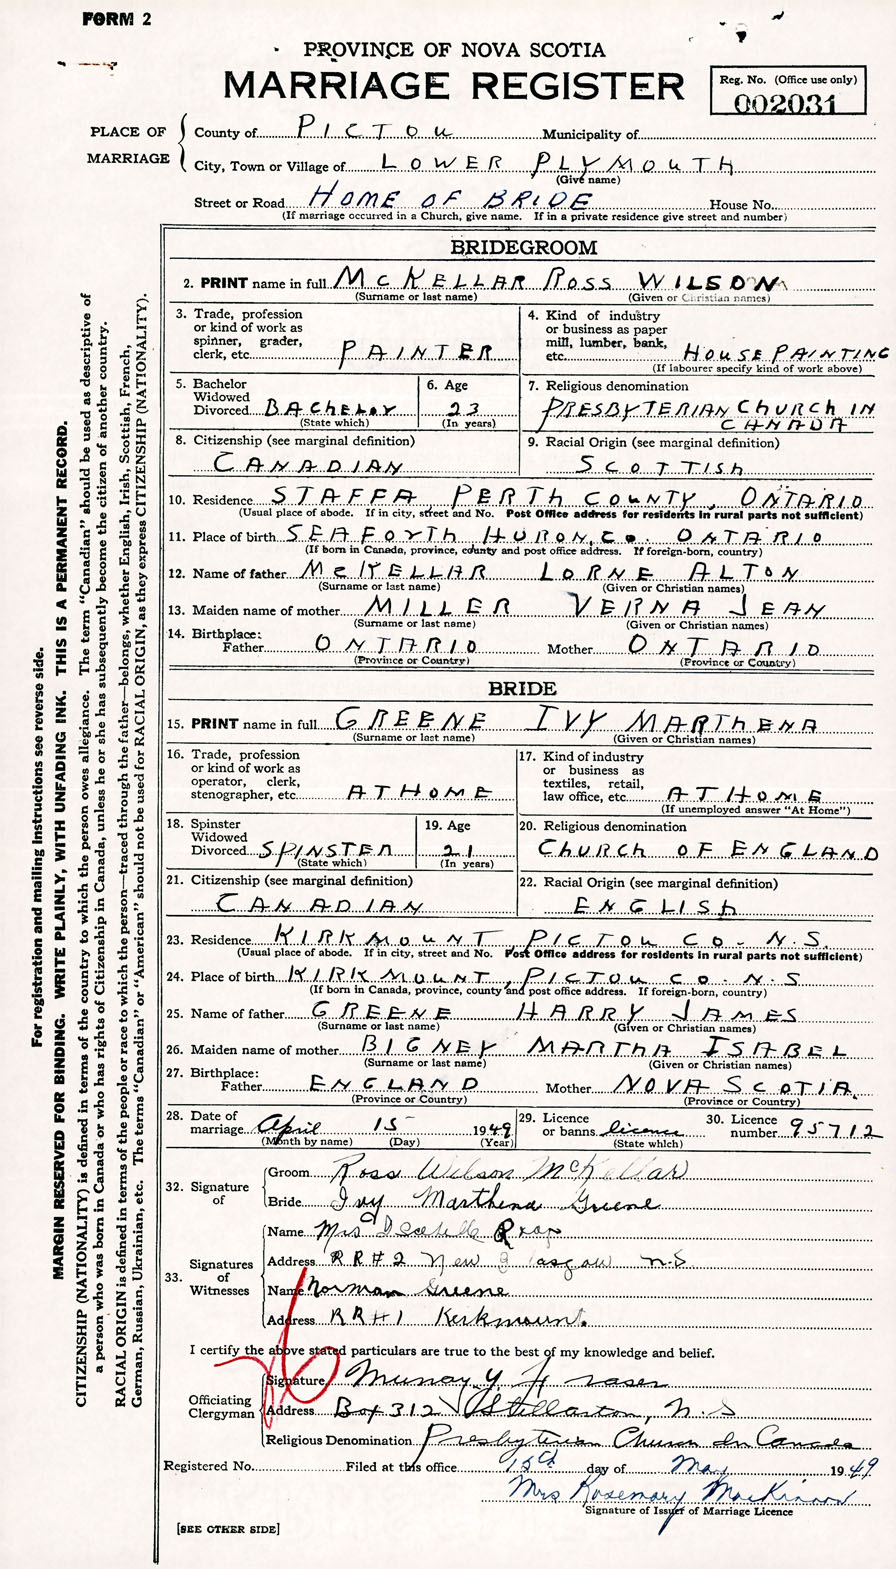 FORM 2
PROVINCE OF NOVA SCOTIA
MARRIAGE REGISTER
Reg. No. (Office use only)
002031
PLACE OF MARRIAGE
County of PICTOU Municipality of
City, Town or Village of LOWER PLYMOUTH
(Give name)
Street or Road HOME OF BRIDE House No.
(If marriage occurred in a Church, give name. If in a private residence give street and number)
BRIDEGROOM
2. PRINT name in full McKELLAR ROSS WILSON
(Surname or last name) (Given or Christian names)
3. Trade, profession
or kind of work as
spinner, grader,
clerk, etc. PAINTER
4. Kind of industry
or business as paper
mill, lumber, bank,
etc. HOUSE PAINTING
(If labourer specify kind of work above)
5. Bachelor
Widowed
Divorced BACHELOR
(State which)
6. Age
23
(In years)
7. Religious denomination
PRESBYTERIAN CHURCH IN
CANADA
8. Citizenship (see marginal definition)
CANADIAN
9. Racial Origin (see marginal definition)
SCOTTISH
10. Residence STAFFA PERTH COUNTY, ONTARIO
(Usual place of abode. If in city, street and No. Post Office address for residents in rural parts not sufficient)
11. Place of birth SEAFORTH HURON, Co. ONTARIO
(If born in Canada, province, county and post office address. If foreign-born, country)
12. Name of father McKELLAR LORNE ALTON
(Surname or last name) (Given or Christian names)
13. Maiden name of mother MILLER VERNA JEAN
(Surname or last name) (Given or Christian names)
14. Birthplace:
Father ONTARIO Mother ONTARIO
(Province or Country) (Province or Country)
BRIDE
15. PRINT name in full GREENE IVY MARTHENA
(Surname or last name) (Given or Christian names)
16. Trade, profession
or kind of work as
operator, clerk,
stenographer, etc. AT HOME
17. Kind of industry
or business as
textiles, retail,
law office, etc. AT HOME
(If unemployed answer "At Home")
18. Spinster
Widowed
Divorced SPINSTER
(State which)
19. Age
21
(In years)
20. Religious denomination
CHURCH OF ENGLAND
21. Citizenship (see marginal definition)
CANADIAN
22. Racial Origin (see marginal definition)
ENGLISH
23. Residence KIRKMOUNT PICTOU CO. N.S.
(Usual place of abode. If in city, street and No. Post Office address for residents in rural parts not sufficient)
24. Place of birth KIRKMOUNT, PICTOU CO. N.S
(If born in Canada, province, county and post office address. If foreign-born, country)
25. Name of father GREENE HARRY JAMES
(Surname or last name) (Given or Christian names)
26. Maiden name of mother BIGNEY MARTHA ISABEL
(Surname or last name) (Given or Christian names)
27. Birthplace:
Father ENGLAND Mother NOVA SCOTIA
(Province or Country) (Province or Country)
28. Date of
marriage April 15 1949
(Month by name) (Day) (Year)
29. Licence
or banns licence
(State which)
30. Licence
number 95712
32. Signature of
Groom Ross Wilson McKellar
Bride Ivy Marthena Greene
33. Signatures of Witnesses
Name Mrs
Address RR#2 New Glasgow N.S.
Name Norman Greene
Address RR#1 Kerkmount.
I certify the above stated particulars are true to the best of my knowledge and belief.
Officiating Clergyman
Signature Murray Y. Fraser
Address Box 312 Stellarton, N.S
Religious Denomination Presbyterian Church In Canada
Registered No. Filed at this office day of May 1949
Mrs Rosemary MacKinnon
Signature of Issuer of Marriage Licence
[SEE OTHER SIDE]
For registration and mailing instructions see reverse side.
MARGIN RESERVED FOR BINDING. WRITE PLAINLY, WITH UNFADING INK. THIS IS A PERMANENT RECORD.
CITIZENSHIP (NATIONALITY) is defined in terms of the country to which the person owes allegiance. The term "Canadian" should be used as descriptive of
a person who was born in Canada or who has rights of Citizenship in Canada, unless he or she has subsequently become the citizen of another country.
RACIAL ORIGIN is defined in terms of the people or race to which the person—traced through the father—belongs, whether English, Irish, Scottish, French,
German, Russian, Ukrainian, etc. The terms "Canadian" or "American" should not be used for RACIAL ORIGIN, as they express CITIZENSHIP (NATIONALITY).